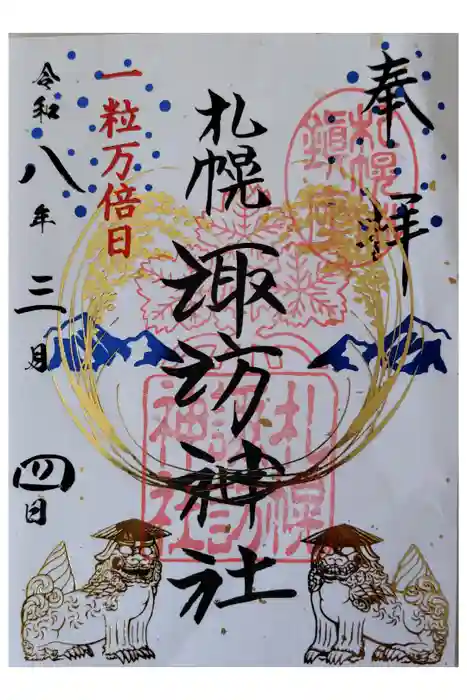 奉拝
札幌
鎮座
札幌
諏訪神社
札幌
諏訪
神社
一粒万倍日
令和八年三月四日